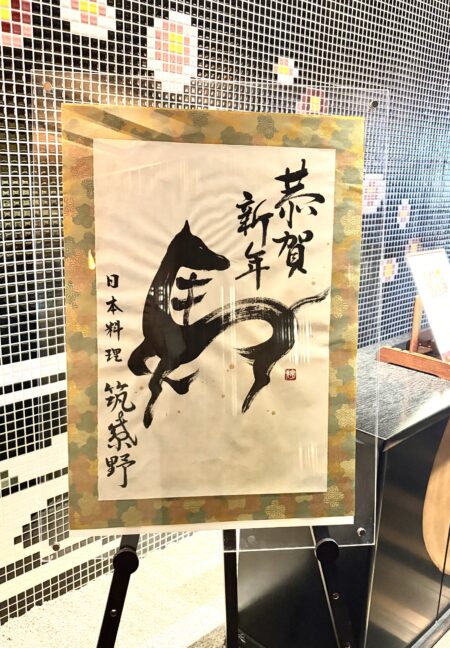 恭賀
新年
日本料理
筑紫野